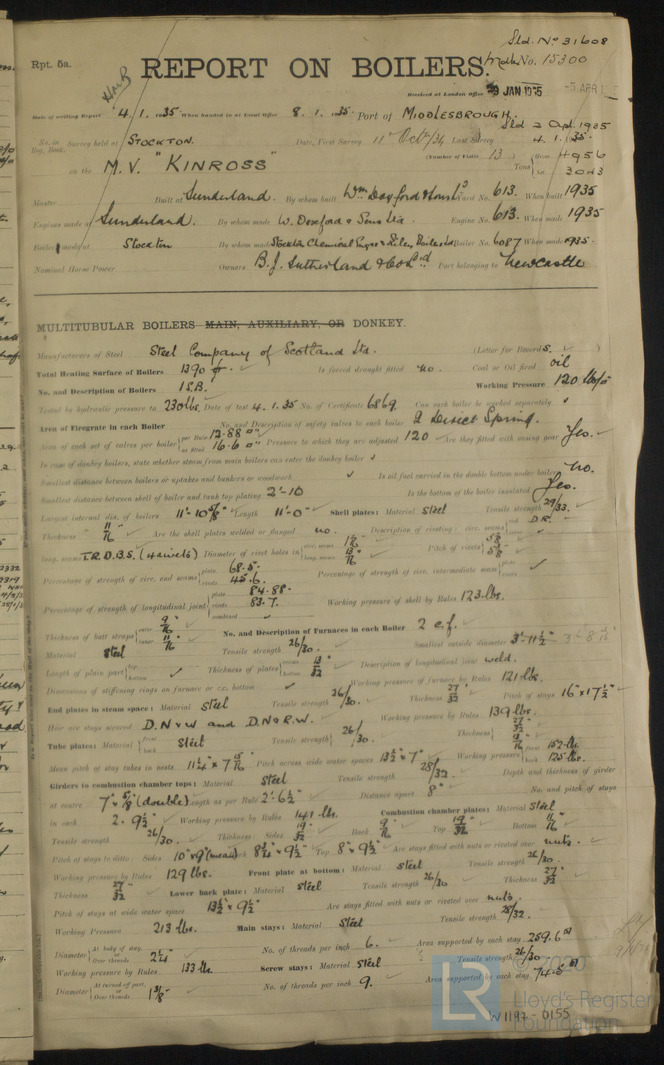 Sld. No 31608
Rpt. 5a.
Mdbr No. 15300
REPORT ON BOILERS.
Received at London Office 9 JAN 1935
Date of writing Report 4.1.1935 When handed in at Local Office 8.1.1935 Port of MIDDLESBROUGH.
Sld 2 Apl. 1935
No. in Reg. Book. Survey held at STOCKTON. Date, First Survey 11th Octr/34 Last Survey 4.1.1935
on the M.V. "KINROSS" (Number of Visits 13) Gross 4956
Tons Net 3043
Master Built at Sunderland. By whom built Wm Doxford & Sons Ld Yard No. 613. When built 1935
Engines made at Sunderland. By whom made W. Doxford & Sons Ltd. Engine No. 613. When made 1935
Boilers made at Stockton By whom made Stockton Chemical Engrs & Riley Boilers Ld Boiler No. 6087 When made 1935.
Nominal Horse Power Owners B.J. Sutherland & Co Ltd Port belonging to Newcastle
MULTITUBULAR BOILERS MAIN, AUXILIARY, OR DONKEY.
Manufacturers of Steel Steel Company of Scotland Ltd. (Letter for Record S. )
Total Heating Surface of Boilers 1390 Is forced draught fitted no. Coal or Oil fired oil
No. and Description of Boilers 1 S.B. Working Pressure 120 lbs
Tested by hydraulic pressure to 230 lbs. Date of test 4.1.35 No. of Certificate 6869. Can each boiler be worked separately ✓
Area of Firegrate in each Boiler No. and Description of safety valves to each boiler 2 Direct Spring.
Area of each set of valves per boiler per Rule 12.88 as fitted 16.6 Pressure to which they are adjusted 120 Are they fitted with easing gear Yes.
In case of donkey boilers, state whether steam from main boilers can enter the donkey boiler ✓
Smallest distance between boilers or uptakes and bunkers or woodwork ✓ Is oil fuel carried in the double bottom under boilers no.
Smallest distance between shell of boiler and tank top plating 2'-10 Is the bottom of the boiler insulated Yes.
Largest internal dia. of boilers 11'-10 5/8" Length 11'-0" Shell plates: Material steel Tensile strength 29/33.
Thickness 11/16" Are the shell plates welded or flanged no. Description of riveting: circ. seams end D.R.
long. seams T.R.D.B.S. (4 rivets) Diameter of rivet holes in circ. seams long. seams Pitch of rivets
Percentage of strength of circ. end seams plate 68.5. rivets 45.6. Percentage of strength of circ. intermediate seam plate rivets
Percentage of strength of longitudinal joint plate 84.88. rivets 83.7. combined Working pressure of shell by Rules 123 lbs.
Thickness of butt straps outer 9/16" inner 11/16" No. and Description of Furnaces in each Boiler 2 c.f.
Material steel Tensile strength 26/30. Smallest outside diameter 3'-11½"
Length of plain part top bottom Thickness of plates crown bottom 13/32 Description of longitudinal joint weld.
Dimensions of stiffening rings on furnace or c.c. bottom ✓ Working pressure of furnace by Rules 121 lbs.
End plates in steam space: Material steel Tensile strength 26/30 Thickness 27/32 Pitch of stays 16" x 17½"
How are stays secured D.N & W and D.N & R.W. Working pressure by Rules 139 lbs.
Tube plates: Material front back Steel Tensile strength 26/30. Thickness 27/32 9/16
Mean pitch of stay tubes in nests 11¼" x 7 15/16 Pitch across wide water spaces 13½" x 7" Working pressure front 152 lbs. back 125 lbs.
Girders to combustion chamber tops: Material steel Tensile strength 28/32 Depth and thickness of girder
at centre 7" x 5/8" (double) Length as per Rule 2'-6½" Distance apart 8" No. and pitch of stays
in each 2. 9½" Working pressure by Rules 141 lbs. Combustion chamber plates: Material steel
Tensile strength 26/30 Thickness: Sides 19/32 Back 9/16 Top 19/32 Bottom 11/16
Pitch of stays to ditto: Sides 10" x 9" (mean) Back 8¾" x 9½" Top 8" x 9½" Are stays fitted with nuts or riveted over nuts.
Working pressure by Rules 129 lbs. Front plate at bottom: Material steel Tensile strength 26/30.
Thickness 27/32 Lower back plate: Material steel Tensile strength 26/30 Thickness 27/32
Pitch of stays at wide water space 13½" x 9½" Are stays fitted with nuts or riveted over nuts.
Working Pressure 213 lbs. Main stays: Material Steel Tensile strength 28/32.
Diameter At body of stay, or Over threads 2¼" No. of threads per inch 6. Area supported by each stay 259.6
Working pressure by Rules 133 lbs. Screw stays: Material Steel Tensile strength 26/30
Diameter At turned off part, or Over threads 1 5/8" No. of threads per inch 9. Area supported by each stay 74.5
LR
Lloyd's Register
Foundation
W1197-0155